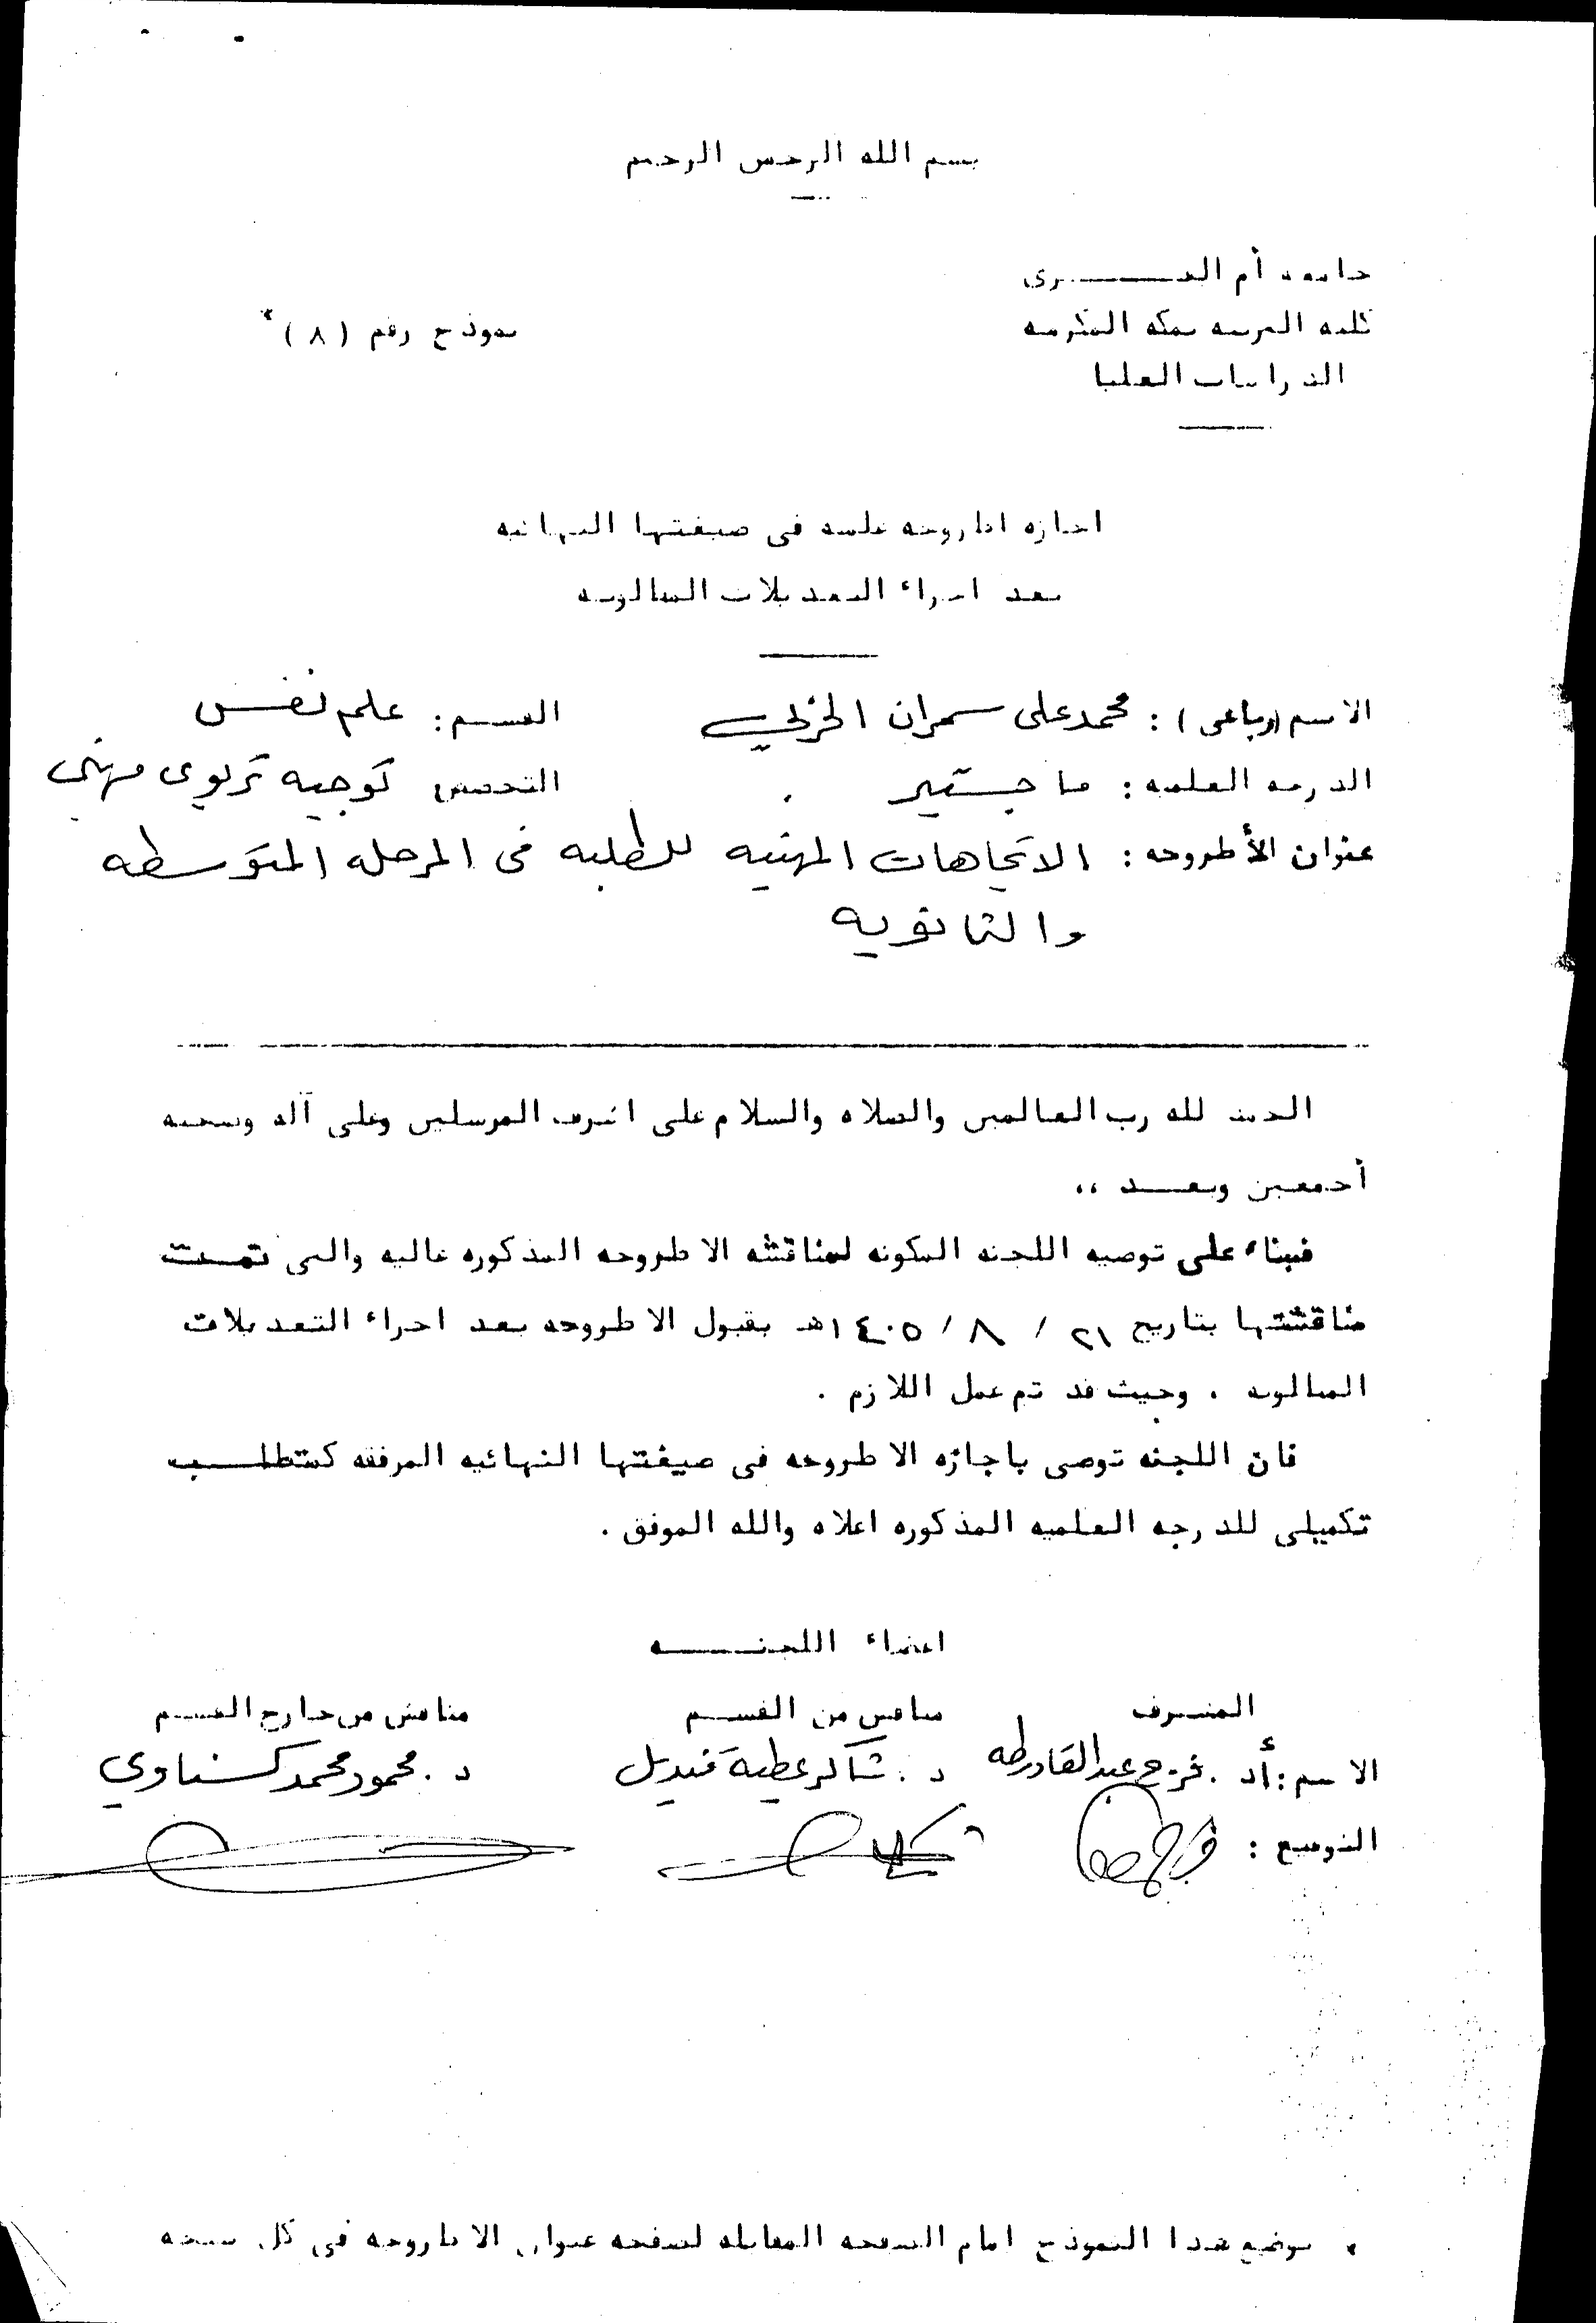 بسم الله الرحمن الرحيم
جامعة أم القــــرى
كلية التربية بمكة المكرمة
نموذج رقم (٨)*
الدراسات العليا
اجازه اطروحه علميه فى صيغتها النهائيه
بعد اجراء التعديلات المطلوبه
الاسم (رباعى) : محمد على سمران الحربي القســم : علم نفس
الدرجه العلميه : ماجستير . التخصص توجيه تربوى مهنى
عنوان الأطروحه : الاتجاهات المهنيه للطلبه فى المرحله المتوسطه
والثانويه
الحمد لله رب العالمين والصلاه والسلام على اشرف المرسلين وعلى آله وصحبه
أجمعين وبعـــد ،،
فبناء على توصيه اللجنه المكونه لمناقشه الاطروحه المذكوره عاليه والتى تمــت
مناقشتها بتاريخ ٢١ / ٨ / ١٤٠٥هـ بقبول الاطروحه بعد اجراء التعديلات
المطلوبه . وحيث قد تم عمل اللازم .
فان اللجنه توصى باجازه الاطروحه فى صيغتها النهائيه المرفقه كمتطلــب
تكميلى للدرجه العلميه المذكوره اعلاه والله الموفق .
اعضاء اللجنـــه
المشــرف مناقش من القســم مناقش من خارج القسـم
الاسم : أ.د . فرج عبد القادر طه د . شاكر عطيه قنديل د . محمود محمد كسناوي
التوقيع :
* يوضع هذا النموذج امام الصفحه المقابله لصفحه عنوان الاطروحه فى كل نسخه